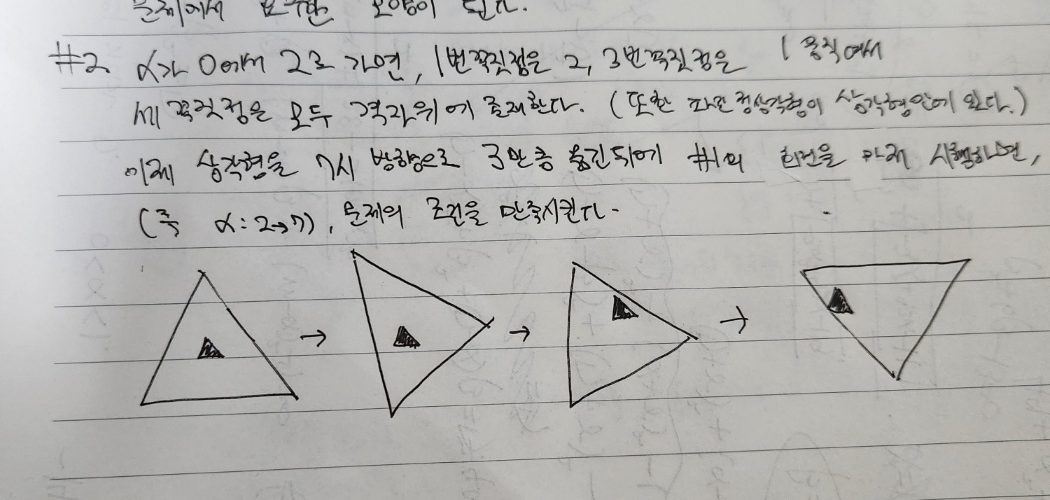 문제에서 요구한 모양이 된다.
#2 α가 0에서 2로 가면, 1번꼭짓점은 2, 3번꼭짓점은 1 움직여서
세 꼭짓점은 모두 격자위에 존재한다. (또한 파란정삼각형이 삼각형안에 있다.)
이제 삼각형을 7시 방향으로 3만큼 옮긴뒤에 #1의 회전을 시행하면,
(즉 α: 2→7), 문제의 조건을 만족시킨다.